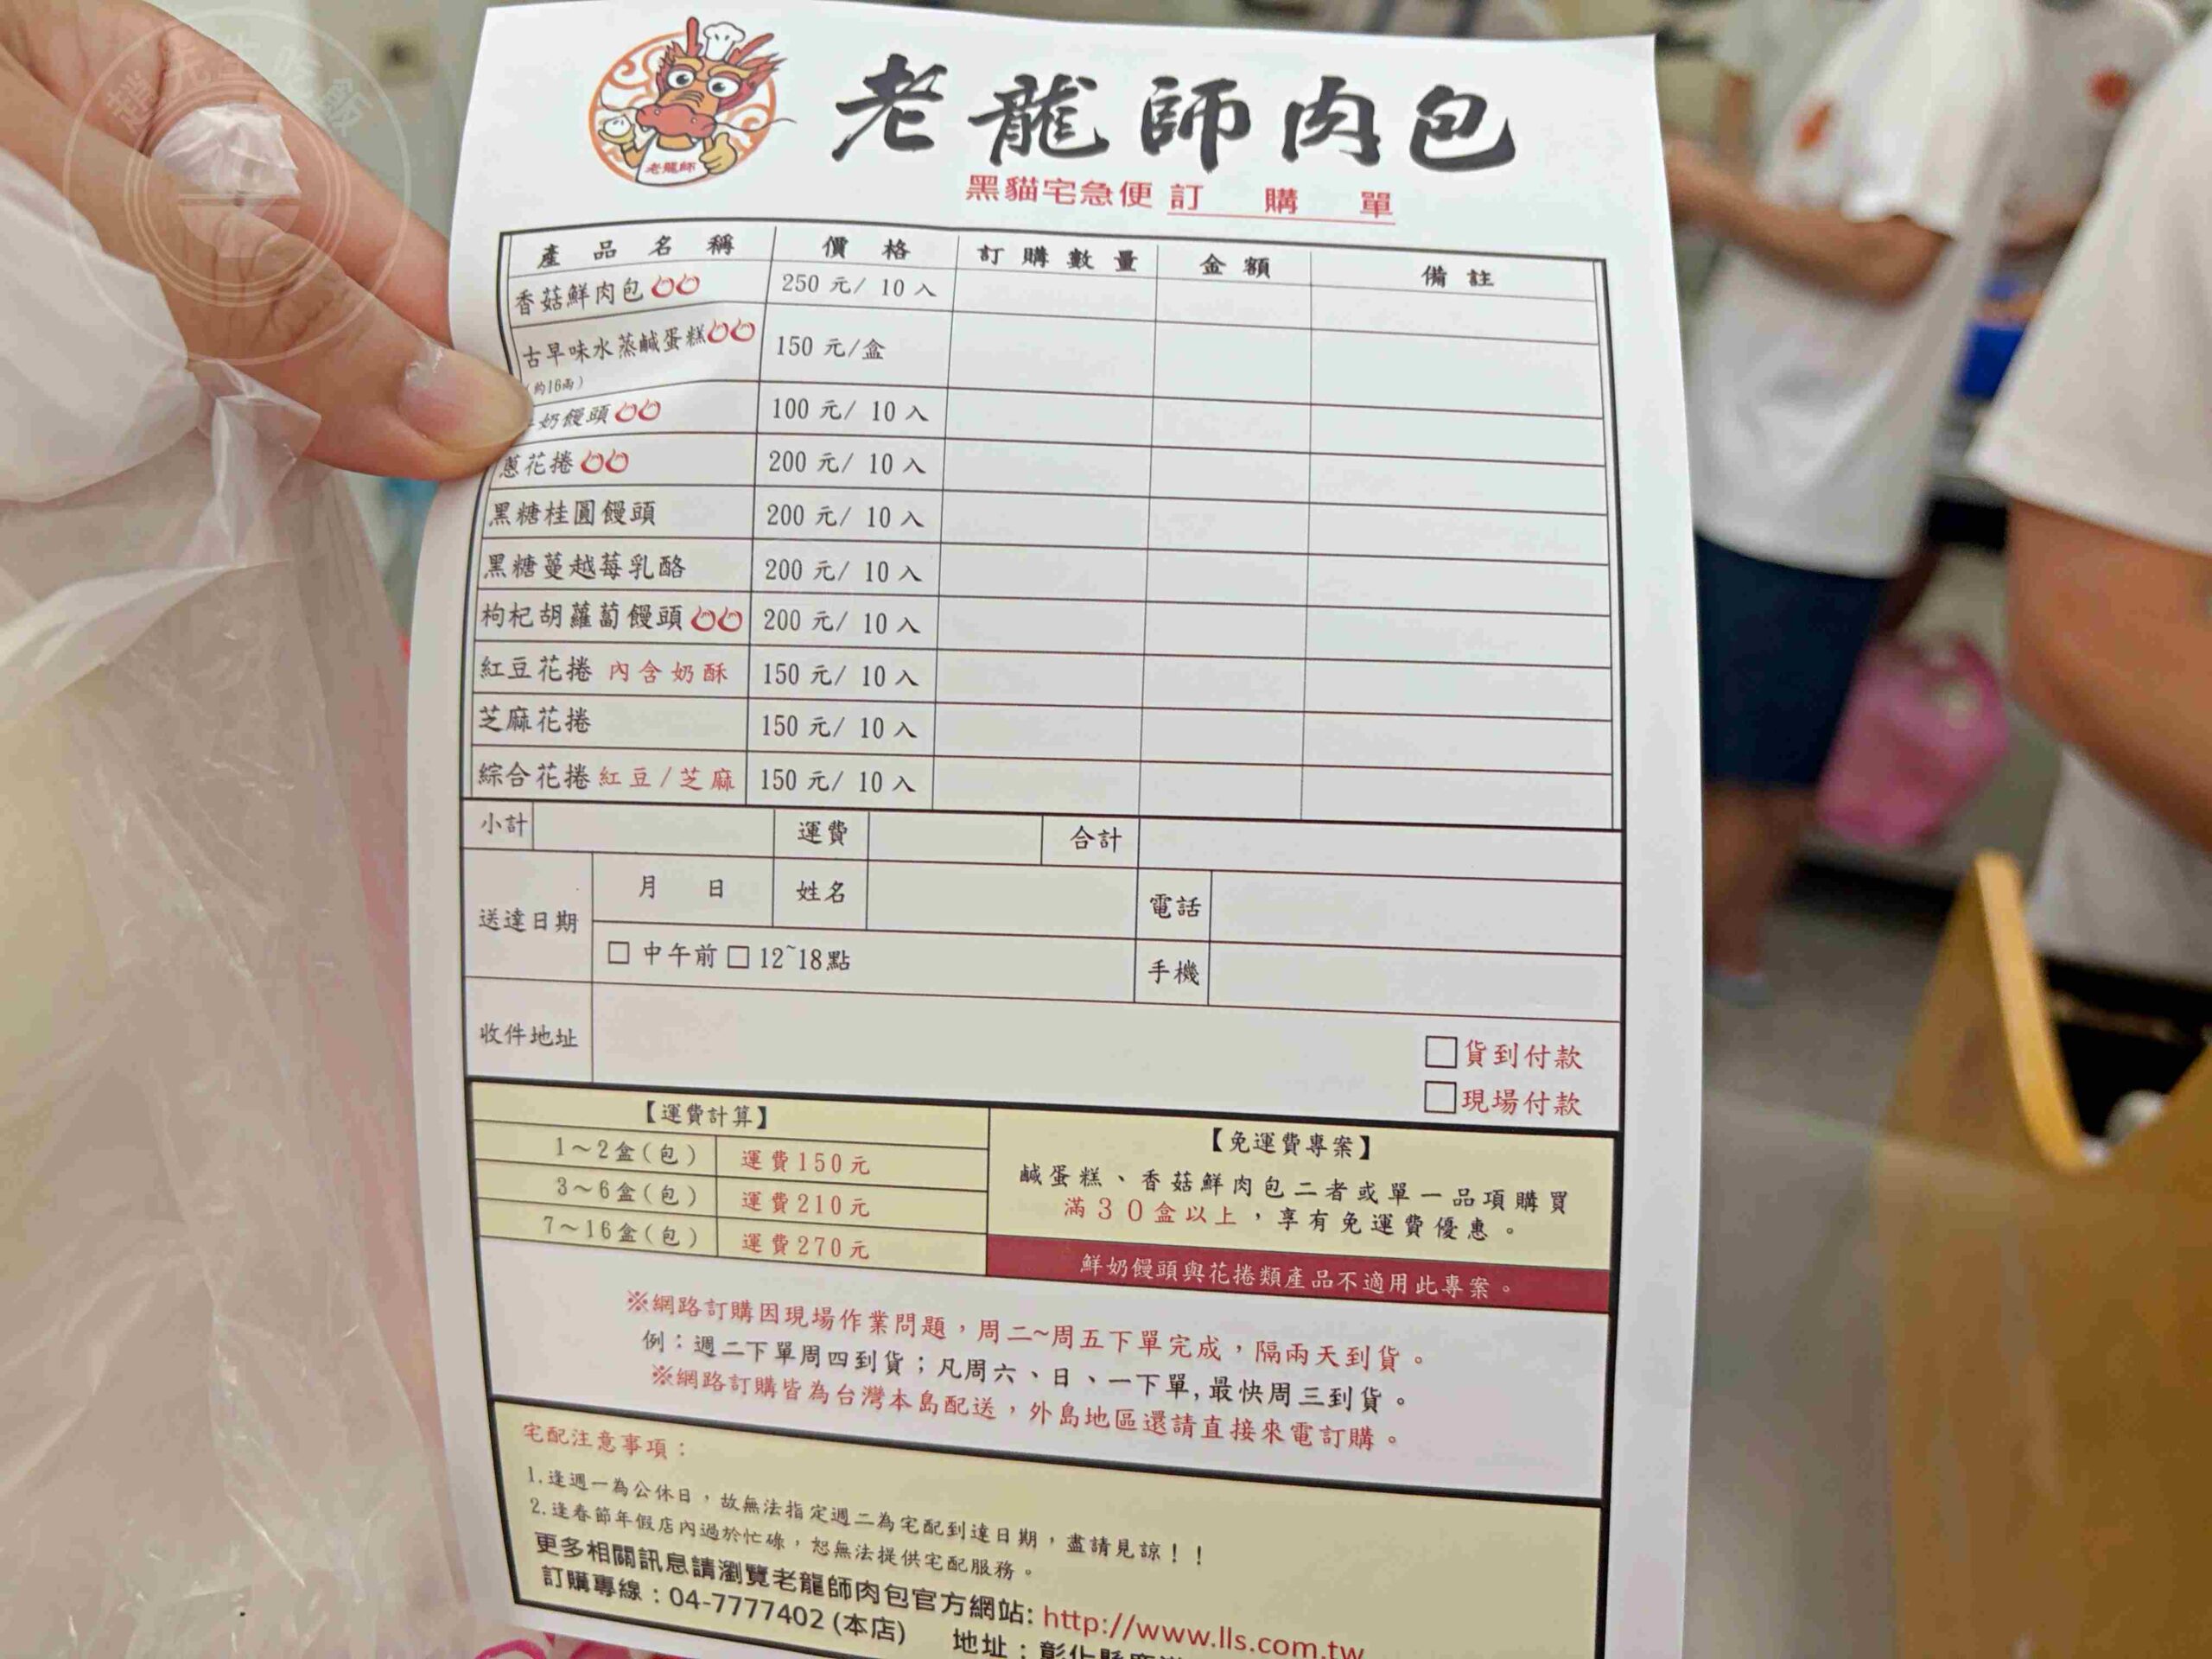 趙先生吃飯
老龍師
老龍師肉包
黑貓宅急便 訂購單
產品名稱 價格 訂購數量 金額 備註
香菇鮮肉包 250元/10入
古早味水蒸鹹蛋糕 150元/盒
(約16兩)
奶饅頭 100元/10入
蔥花捲 200元/10入
黑糖桂圓饅頭 200元/10入
黑糖蔓越莓乳酪 200元/10入
枸杞胡蘿蔔饅頭 200元/10入
紅豆花捲 內含奶酥 150元/10入
芝麻花捲 150元/10入
綜合花捲 紅豆/芝麻 150元/10入
小計 運費 合計
送達日期 月 日 姓名 電話
□中午前 □12~18點 手機
收件地址
□貨到付款
□現場付款
【運費計算】
1~2盒(包) 運費150元
3~6盒(包) 運費210元
7~16盒(包) 運費270元
【免運費專案】
鹹蛋糕、香菇鮮肉包二者或單一品項購買
滿30盒以上,享有免運費優惠。
鮮奶饅頭與花捲類產品不適用此專案。
※網路訂購因現場作業問題,周二~周五下單完成,隔兩天到貨。
例:週二下單周四到貨;凡周六、日、一下單,最快周三到貨。
※網路訂購皆為台灣本島配送,外島地區還請直接來電訂購。
宅配注意事項:
1.逢週一為公休日,故無法指定週二為宅配到達日期,盡請見諒!!
2.逢春節年假店內過於忙碌,恕無法提供宅配服務。
更多相關訊息請瀏覽老龍師肉包官方網站: http://www.lls.com.tw
訂購專線:04-7777402(本店) 地址:彰化縣